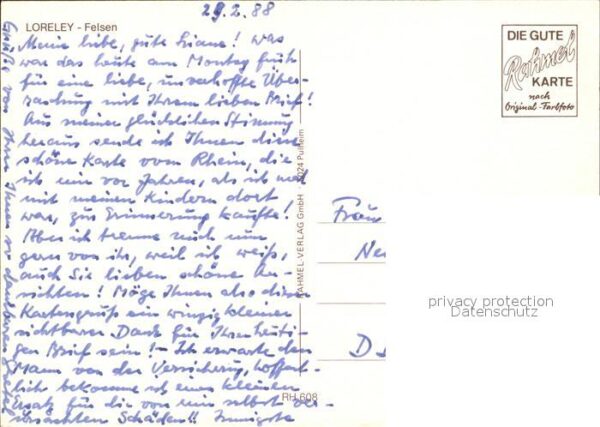 29.2.88
LORELEY - Felsen
Meine liebe, gute Liane! Was
war das heute am Montag früh
für eine liebe, unverhoffte Über-
raschung mit Ihrem lieben Brief!
Aus meiner glücklichen Stimmung
heraus sende ich Ihnen diese
schöne Karte vom Rhein, die
ich mir vor Jahren, als ich mal
mit meinen Kindern dort
war, zur Erinnerung kaufte!
Aber ich trenne mich nun
gern von ihr, weil ich weiß,
auch Sie lieben schöne An-
sichten! Möge Ihnen also dieser
Kartengruß ein winzig kleiner
sichtbarer Dank für Ihren heuti-
gen Brief sein! - Ich erwarte den
Mann von der Versicherung, hoffent-
lich bekomme ich einen kleinen
Ersatz für die von mir selbst ver-
ursachten Schäden!! Innigste
Grüße von Ihrer Ihnen so dankbaren
RAHMEL-VERLAG GmbH · 5024 Pulheim
RH 608
DIE GUTE
Rahmel
KARTE
nach
Original-Farbfoto
Frau
D
privacy protection
Datenschutz